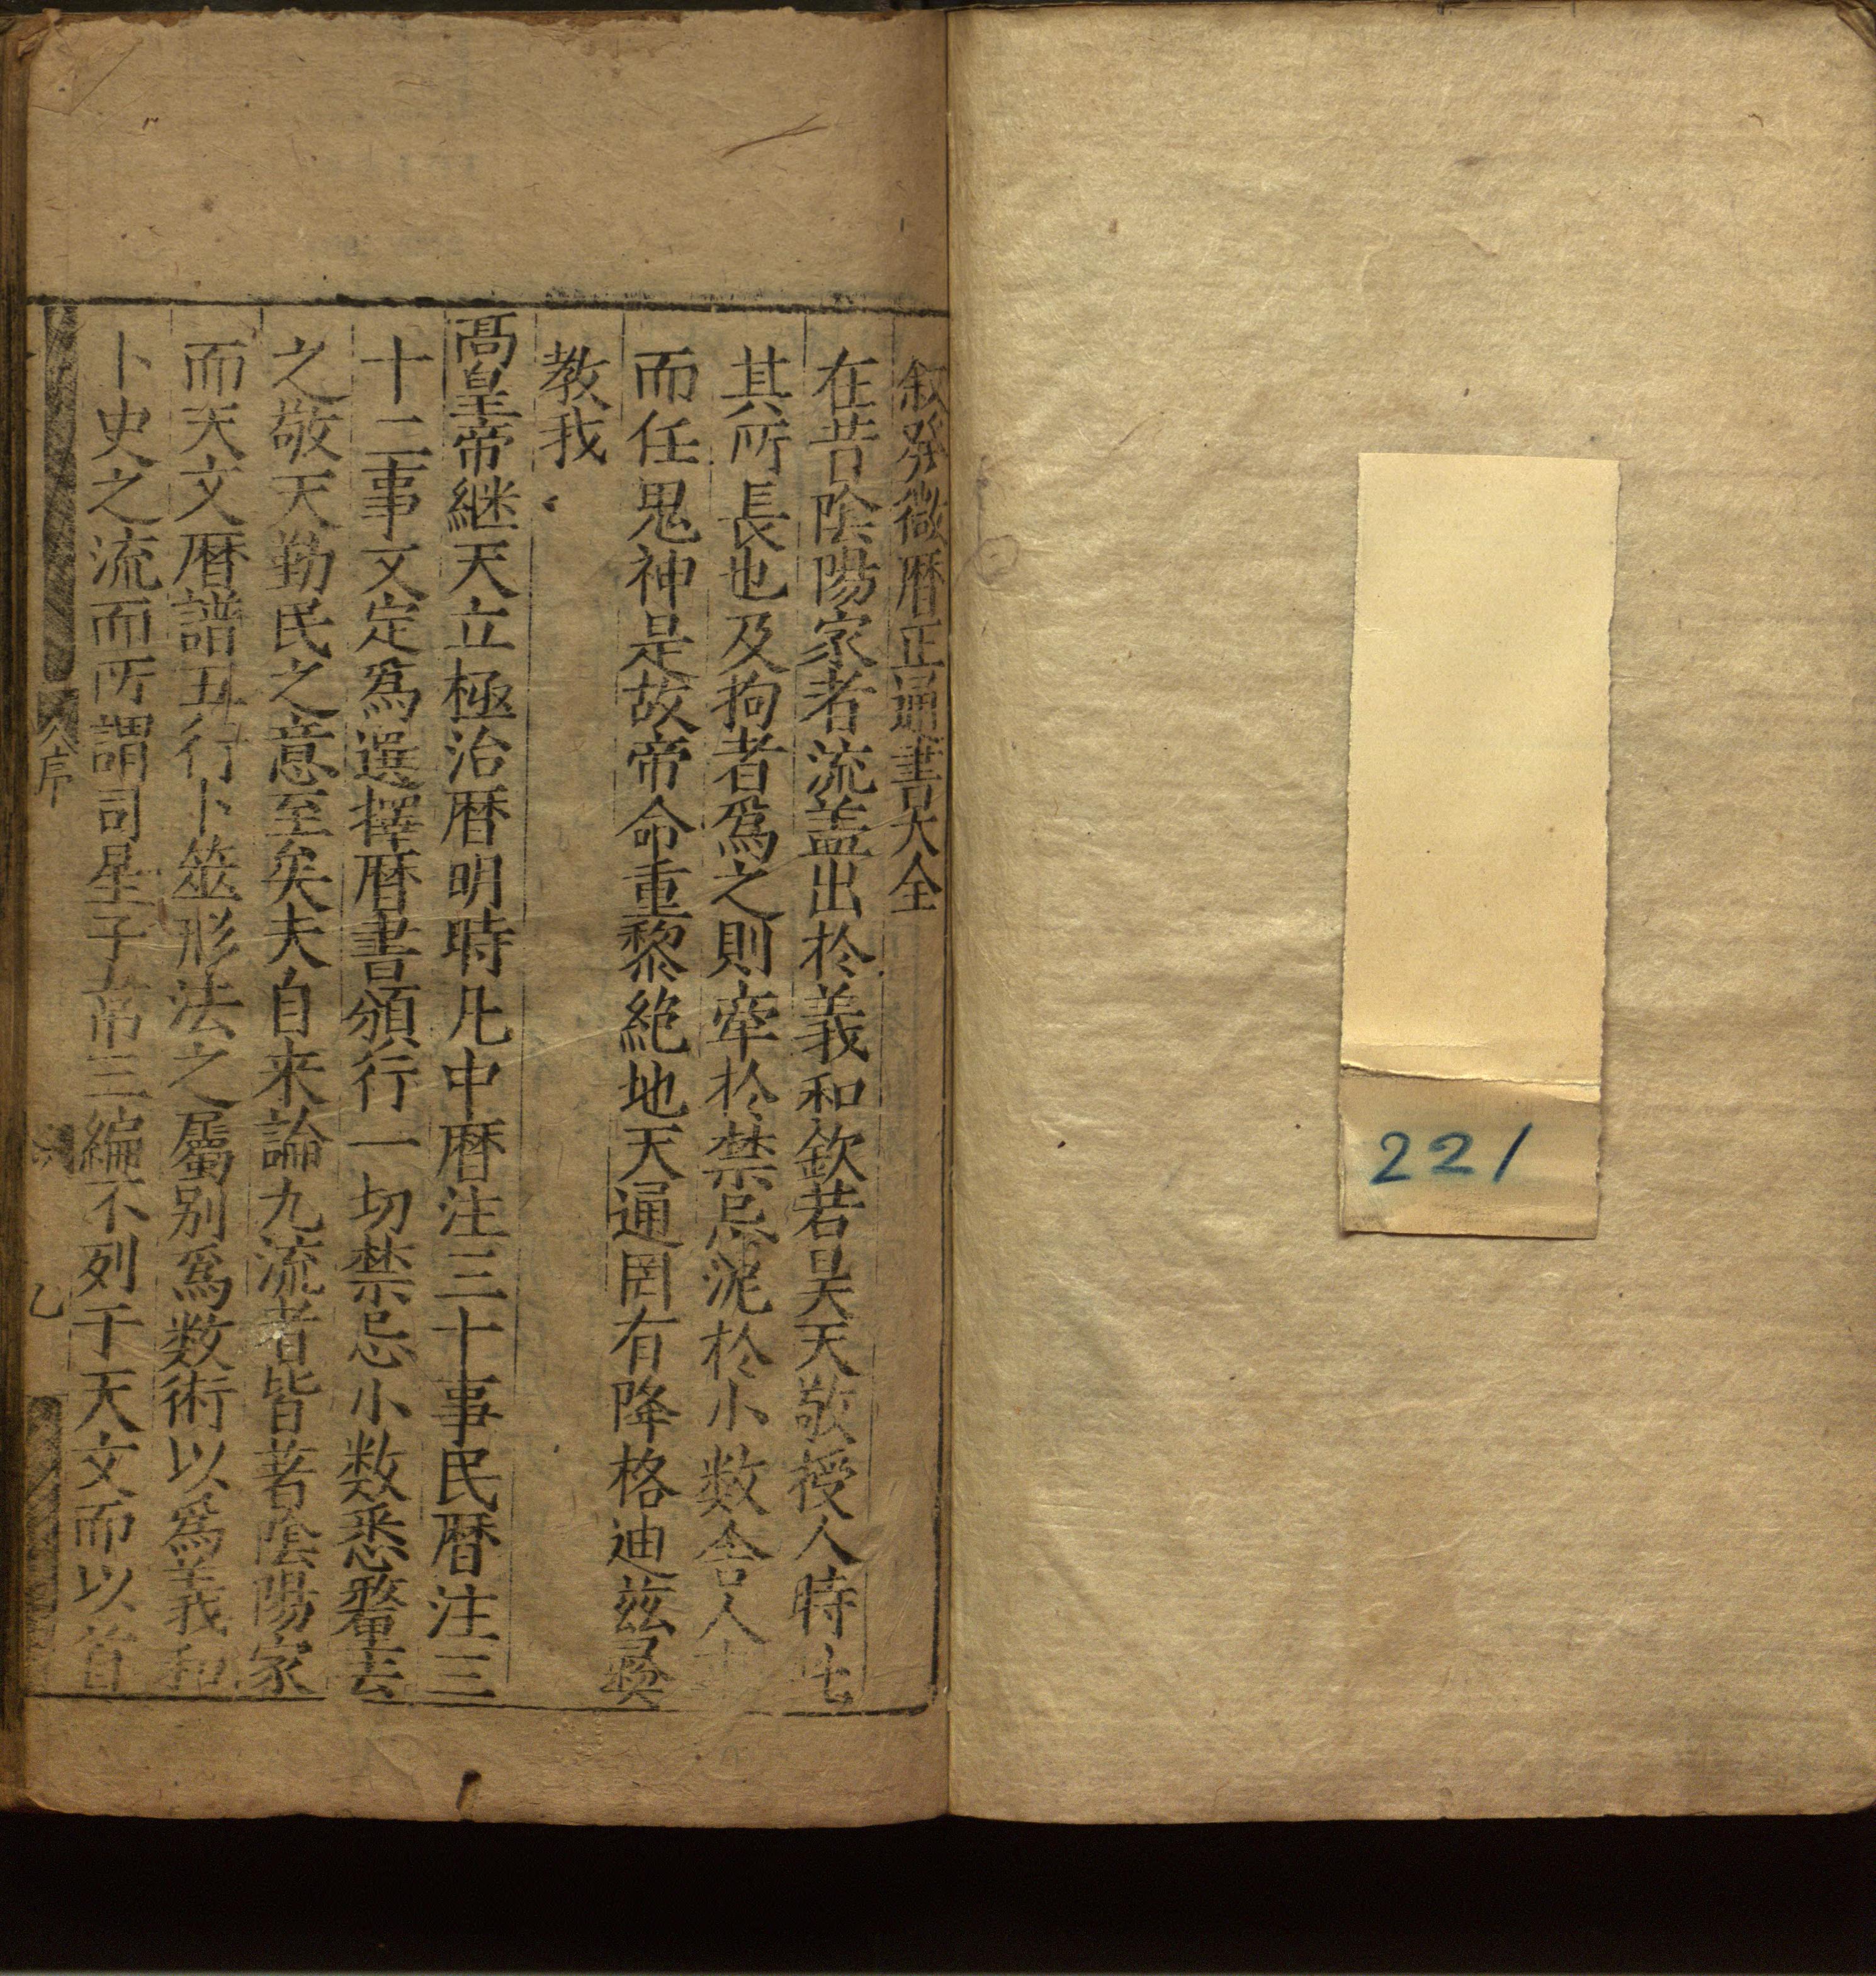 221
叙發微曆正通書大全
在昔陰陽家者流盖出於羲和欽若昊天敬授人時七
其所長也及拘者爲之則牽於禁忌泥於小数舍人
而任鬼神是故帝命重黎絶地天通罔有降格迪兹彛
教我
髙皇帝継天立極治曆明時凡中曆注三十事民曆注三
十二事又定爲選擇曆書頒行一切禁忌小数悉釐去
之敬天勤民之意至矣夫自来論九流者皆著陰陽家
而天文曆譜五行卜筮形法之屬别爲数術以爲羲和
卜史之流而所謂司星子常三編不列于天文而以
序
乙